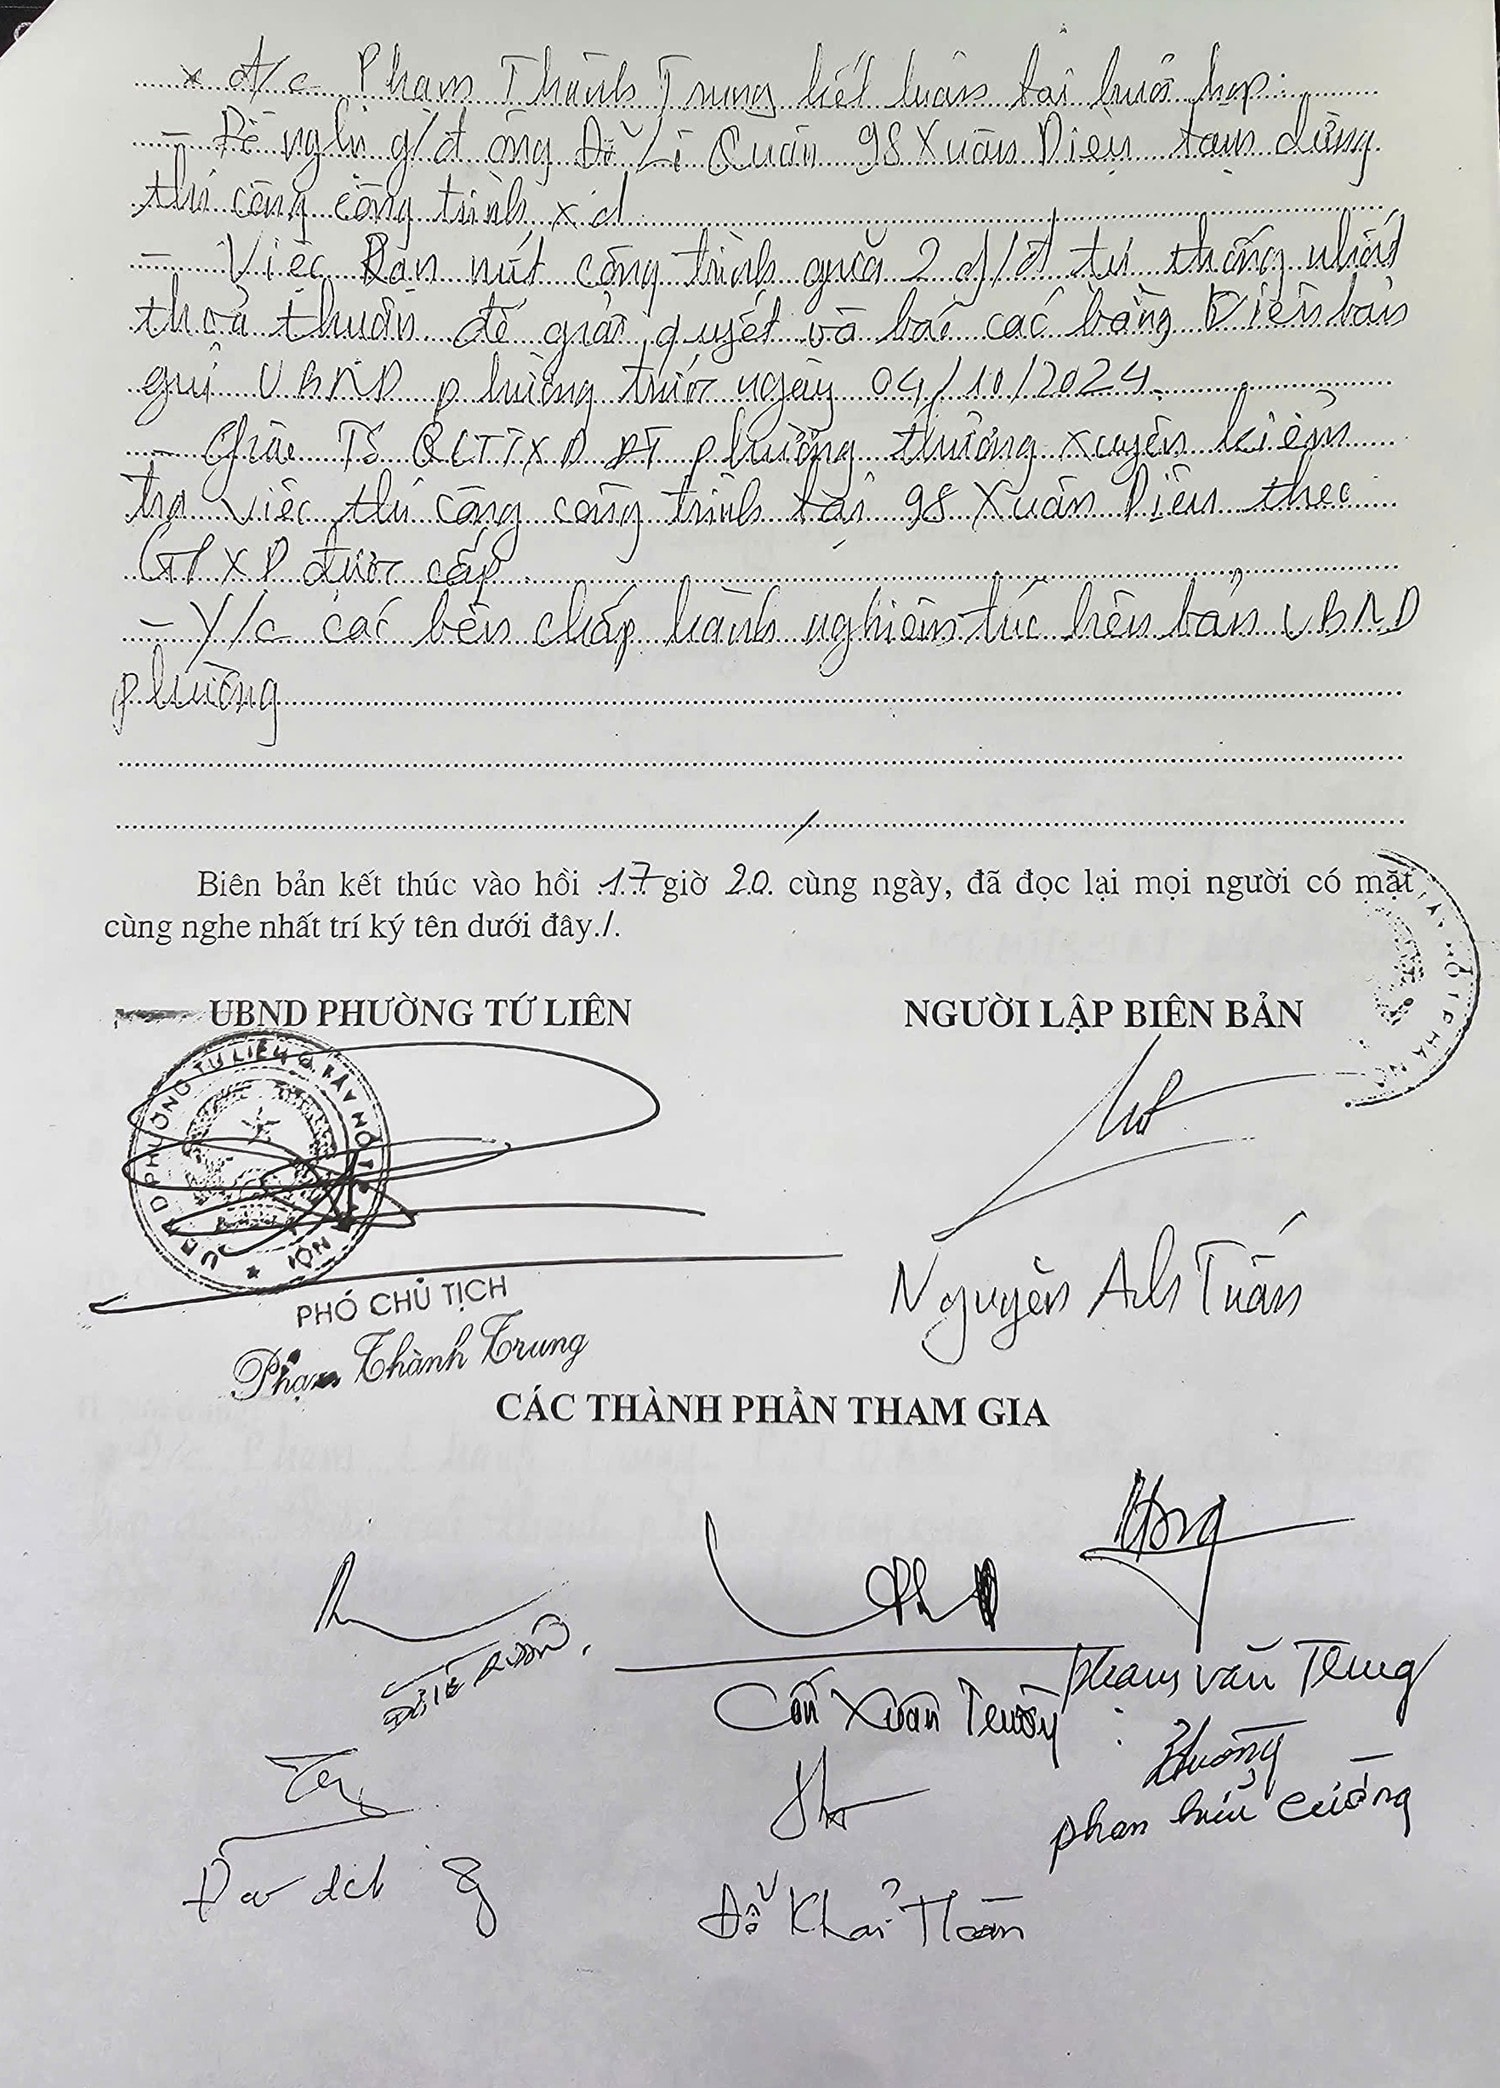 * đ/c Phạm Thành Trung kết luận tại buổi họp:
- Đề nghị g/đ ông Đỗ Lê Quân 98 Xuân Diệu tạm dừng
thi công công trình xd
- Việc Rạn nứt công trình giữa 2 g/đ tự thống nhất
thoả thuận để giải quyết và báo cáo bằng Biên bản
gửi UBND phường trước ngày 04/10/2024.
- Giao Tổ QLTTXD ĐT phường thường xuyên kiểm
tra việc thi công công trình tại 98 Xuân Diệu theo
GPXD được cấp.
- Y/c các bên chấp hành nghiêm túc biên bản UBND
phường
/
Biên bản kết thúc vào hồi 17 giờ 20 cùng ngày, đã đọc lại mọi người có mặt
cùng nghe nhất trí ký tên dưới đây./.
UBND PHƯỜNG TỨ LIÊN
NGƯỜI LẬP BIÊN BẢN
UBND PHƯỜNG TỨ LIÊN Q. TÂY HỒ TP HÀ NỘI
TÂY HỒ TP HÀ NỘI
PHÓ CHỦ TỊCH
Phạm Thành Trung
Nguyễn Anh Tuấn
CÁC THÀNH PHẦN THAM GIA
Hong
Đỗ Lê Quân
Cấn Xuân Trường
Phạm Văn Trung
Phan Hữu Cường
Đỗ Khải Hoàn